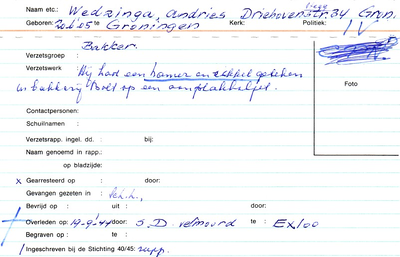 Naam etc.: Wedzinga, Andries Driehovenstr. 34 Gron.
Geboren: 20-2-'05 te Groningen Kerk: Politiek:
Bakker.
Verzetsgroep :
Verzetswerk : Hij had een hamer en sikkel getekend
in bakkerij op een aanplakbiljet.
Foto
Contactpersonen:
Schuilnaam :
Verzetsrapp. ingel. dd. : bij:
Naam genoemd in rapp.:
op bladzijde:
x Gearresteerd op : door:
Gevangen gezeten in : Sch.h.,
Bevrijd op : uit : door:
Overleden op: 19-9-'44 door: S.D. vermoord te : Exloo
Begraven op : te :
Ingeschreven bij de Stichting 40/45: rapp.